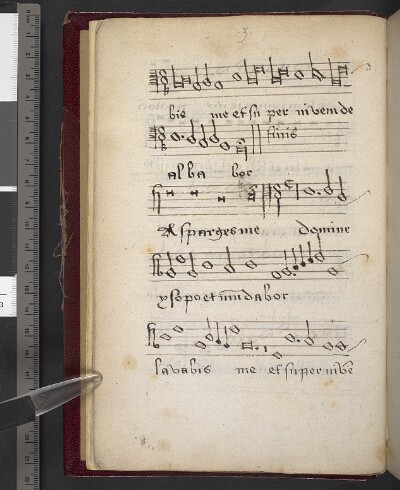 3
bis me et su per nivem de
finis
alba bor
Asparges me domine
ysopo et mūdabor
lavabis me et super nivē